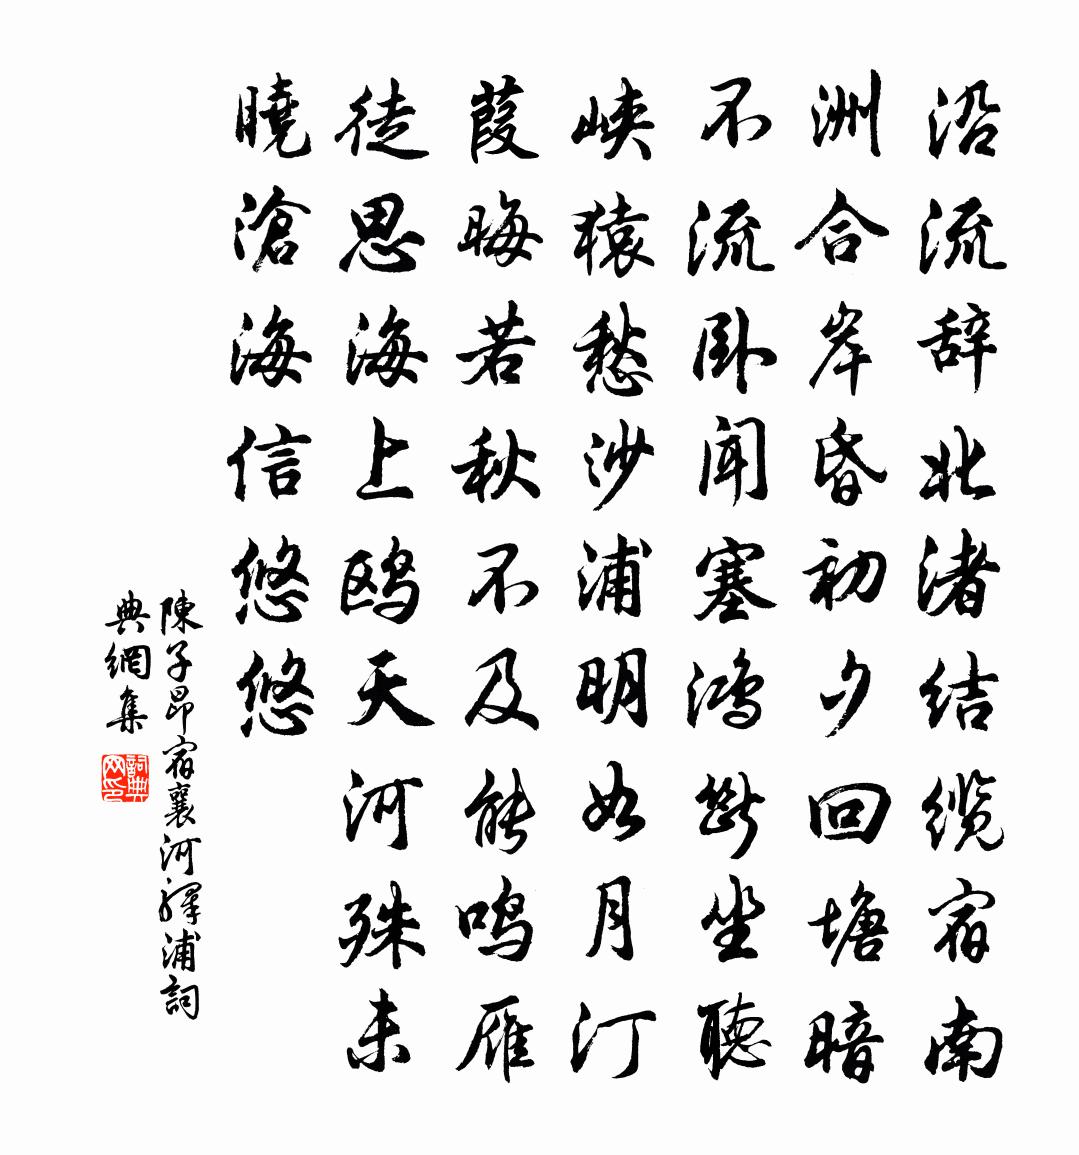 沿流辞北渚结缆宿南
洲合岸昏初夕回塘暗
不流卧闻塞鸿斷坐聽
峽猿愁沙浦明如月汀
葭晦若秋不及能鸣雁
徒思海上鸥天河殊未
曉滄海信悠悠
陳子昂宿襄河驛浦詞
典網集
詞典网印